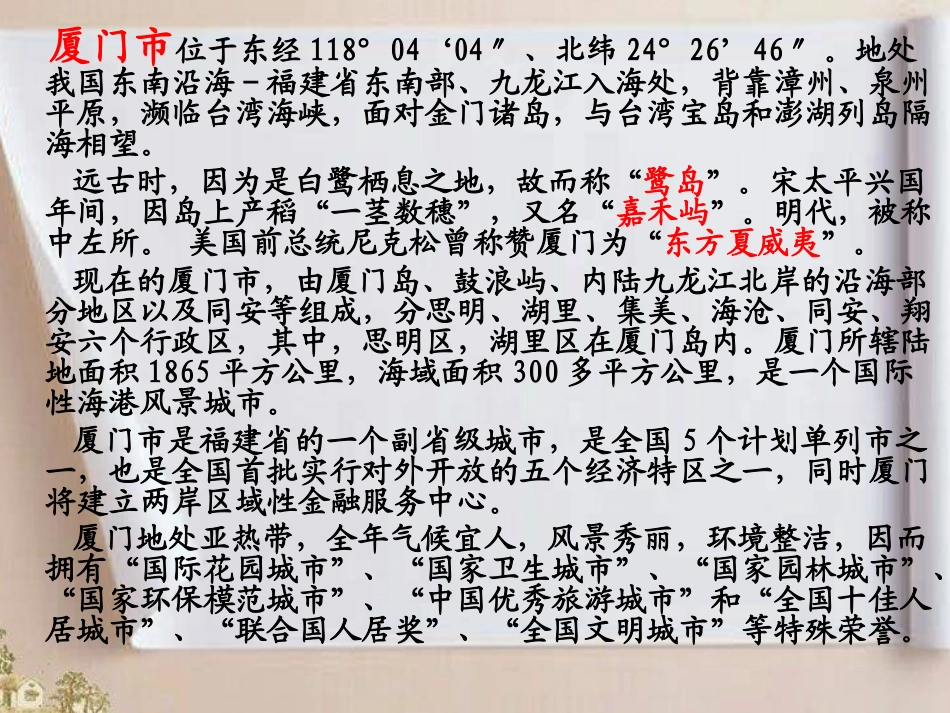 厦门市位于东经118°04‘04″、北纬24°26’46″。地处
我国东南沿海－福建省东南部、九龙江入海处，背靠漳州、泉州
平原，濒临台湾海峡，面对金门诸岛，与台湾宝岛和澎湖列岛隔
海相望。
远古时，因为是白鹭栖息之地，故而称“鹭岛”。宋太平兴国
年间，因岛上产稻“一茎数穗”，又名“嘉禾屿”。明代，被称
中左所。 美国前总统尼克松曾称赞厦门为“东方夏威夷”。
现在的厦门市，由厦门岛、鼓浪屿、内陆九龙江北岸的沿海部
分地区以及同安等组成，分思明、湖里、集美、海沧、同安、翔
安六个行政区，其中，思明区，湖里区在厦门岛内。厦门所辖陆
地面积1865平方公里，海域面积300多平方公里，是一个国际
性海港风景城市。
厦门市是福建省的一个副省级城市，是全国5个计划单列市之
一，也是全国首批实行对外开放的五个经济特区之一，同时厦门
将建立两岸区域性金融服务中心。
厦门地处亚热带，全年气候宜人，风景秀丽，环境整洁，因而
拥有“国际花园城市”、“国家卫生城市”、“国家园林城市”、
“国家环保模范城市”、“中国优秀旅游城市”和“全国十佳人
居城市”、“联合国人居奖”、“全国文明城市”等特殊荣誉。